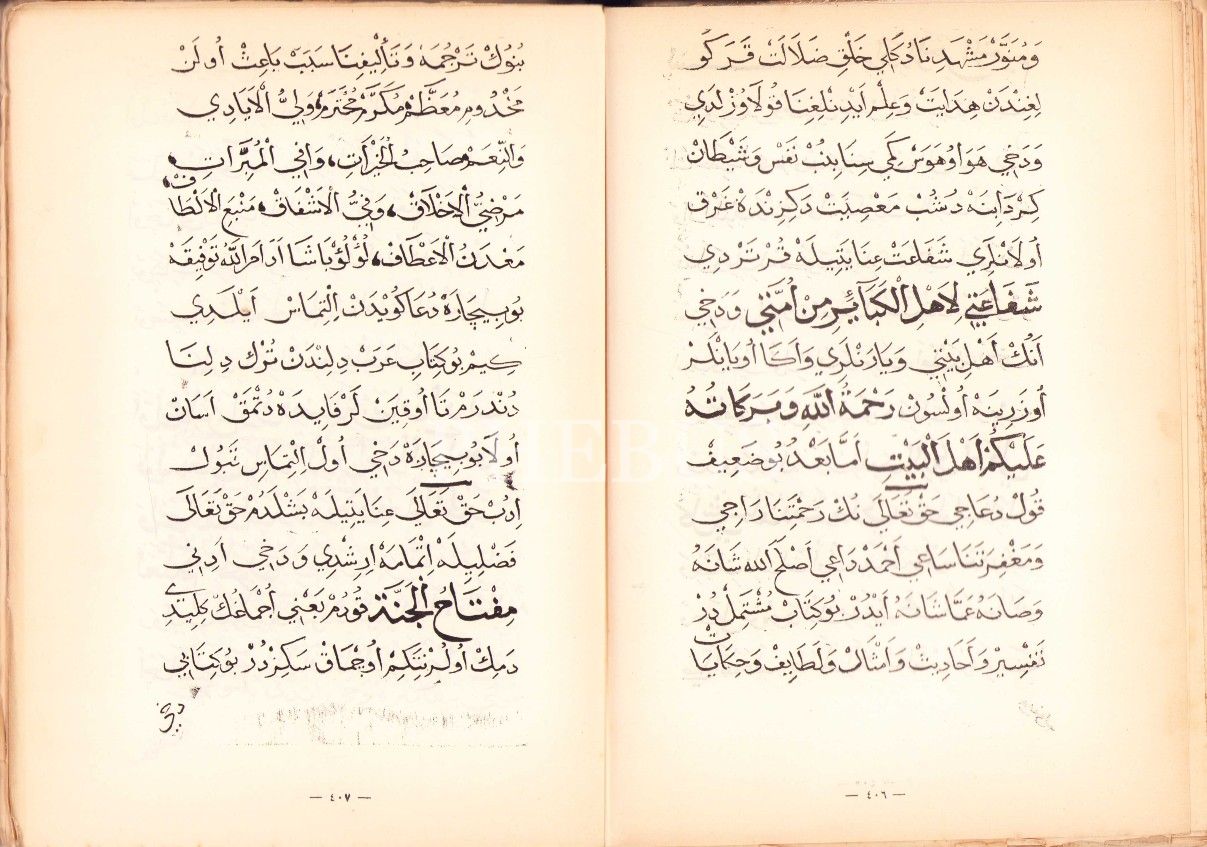 وَمُنَوَّرْ مَشْهَدِنَا دَكَلِي خَلْقِ ضَلَالَتْ قَرَكُو
لِغِنْدَنْ هِدَايَتْ وَعِلْم اَيْدِنْلِغِنَا قُولَاوُزْلَدِي
وَدَخِي هَوَا وُهَوَسْ كَمِي سِنَا بِنُبْ نَفَسْ وَشَيْطَانْ
كِرْدَابِنَه دُشُبْ مَعْصِيَتْ دَكِزِنْدَهْ غَرْق
اُولَانْلَرِي شَفَاعَتْ عِنَايَتِيلَهْ قُرْتَرْدِي
شَفَاعَتِي لِاَهْلِ الْكَبَآئِرِ مِنْ اُمَّتِي وَدَخِي
اَنُكْ اَهْلِ بَيْتِي وَيَارَنْلَرِي وَاَكَا اُويَانْلَرْ
اُوزَرِينَه اُولْسُونْ رَحْمَةُ اللّٰهِ وَبَرَكَاتُهُ
عَلَيْكُمْ اَهْلَ الْبَيْتِ اَمَّا بَعْدُ بُو ضَعِيفْ
قُولْ دُعَاجِي حَقْ تَعَالَى نُكْ رَحْمَتِنَا رَاجِي
وَمَغْفِرَتِنَا سَاعِي اَحْمَدْ دَاعِي اَصْلَحَ اللّٰه شَانَهُ
وَصَانَهُ عَمَّا شَانَهُ اَيْدُرْ بُو كِتَابْ مُشْتَمِلْ دُرْ
تَفْسِيرْ وَاَحَادِيثْ وَاَمْثَالْ وَلَطَايِفْ وَحِكَايَاتْ
— ٤٠٦ —
بُنُوكْ تَرْجُمَه وَتَأْلِيفِنَا سَبَبْ بَاعِثْ اُولَنْ
مَخْدُومِ مُعَظَّمْ مُكَرَّمْ مُحْتَرَمْ وَلِيُّ الْاَيَادِي
وَالنِّعَمْ، صَاحِبُ الْخَيْرَاتِ، وَافِي الْمُبَرَّاتِ،
مَرْضِيُّ الْاَخْلَاقْ، وَفِيُّ الْاَشْفَاقْ، مَنْبَعُ الْاَلْطَافْ،
مَعْدَنُ الْاَعْطَافْ، لُؤْلُؤْ پَاشَا اَدَامَ اللّٰهُ تَوْفِيقَهُ
بُو بِيچَارَهْ دُعَا كُويْدَنْ اِلْتِمَاسْ اَيْلَدِي
كِيمْ بُو كِتَابِ عَرَبْ دِلِنْدَنْ تُرْك دِلِنَا
دُنْدَرَمْ تَا اُوقِيَنْ لَرْ فَايِدَهْ دُتْمَقْ اٰسَانْ
اُولَا بُو بِيچَارَهْ دَخِي اُولْ اِلْتِمَاسِ قَبُولْ
اِدُبْ حَقْ تَعَالَى عِنَايَتِيلَهْ بَشْلَدُمْ حَقْ تَعَالَى
فَضْلِيلَهْ اِتْمَامَهْ اِرِشْدِي وَدَخِي اَدِنِي
مِفْتَاحُ الْجَنَّة قُودُمْ يَعْنِي اُجْمَاغُكْ كِلِيدِي
دَمِكْ اُولُرْ نِتَكِمْ اُوجْمَاقْ سَكِزْ دُرْ بُو كِتَابِي
دخي
— ٤٠٧ —